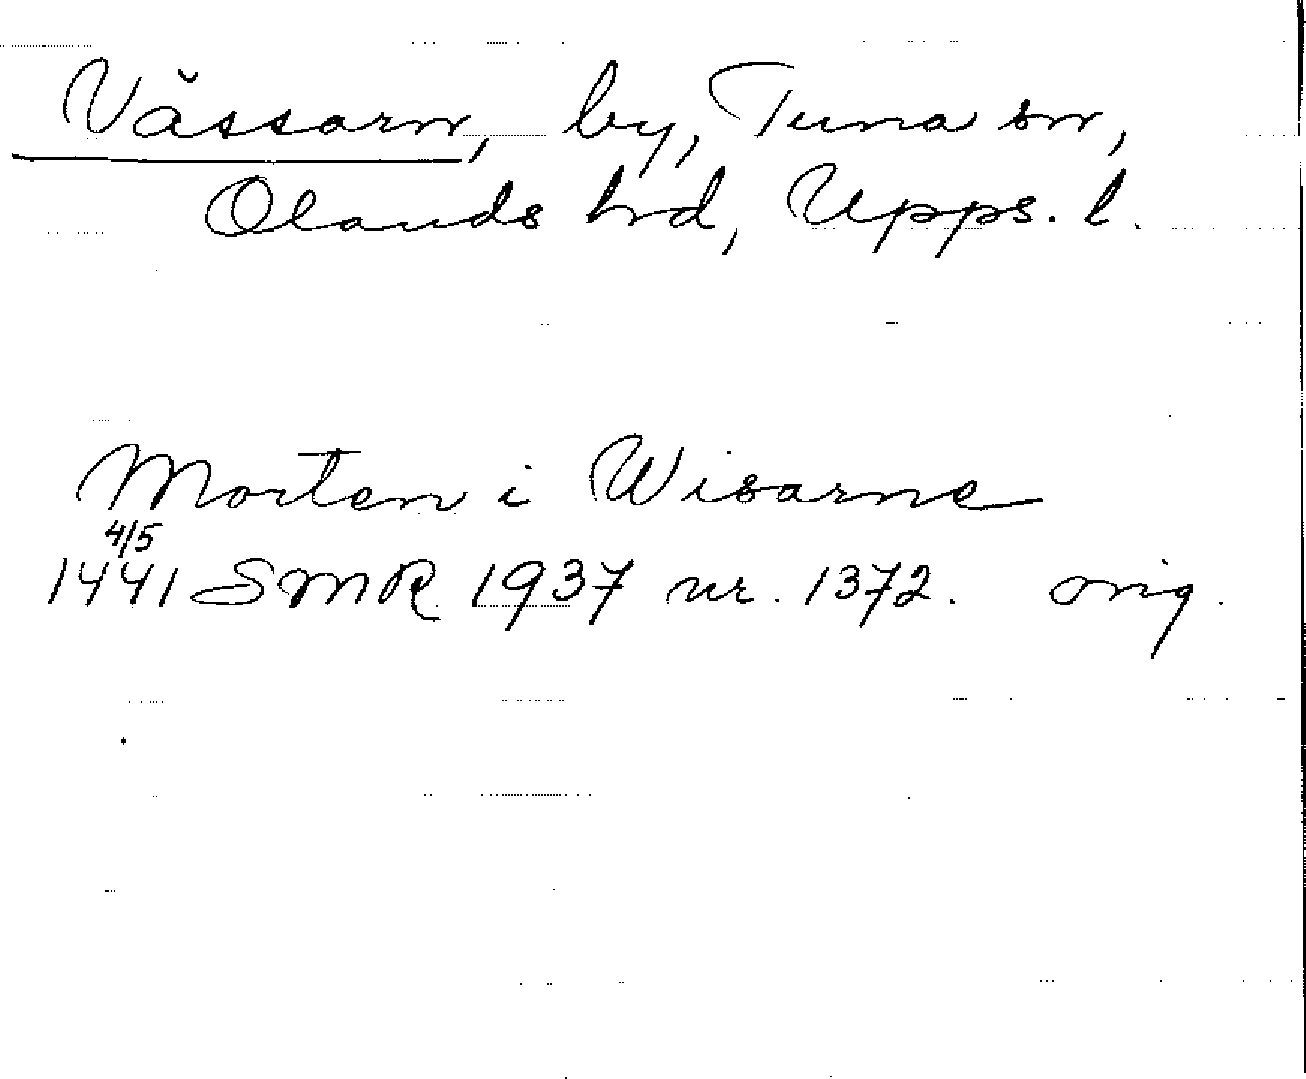 Vässarn, by, Tuna sn,
Olands hrd, Upps. l.
Morten i Wisarne
4/5
1441 SMR 1937 nr. 1372. orig.